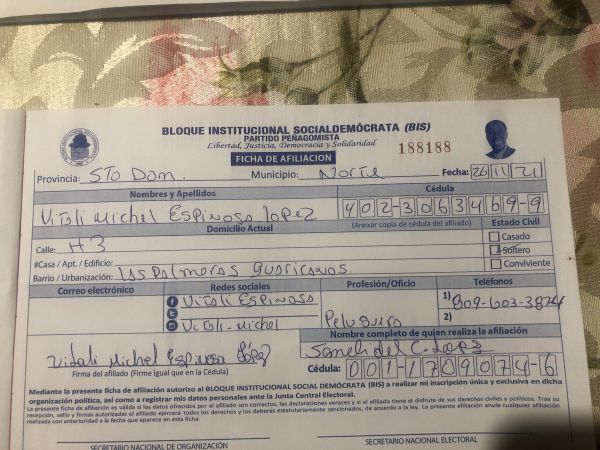 BLOQUE INSTITUCIONAL SOCIALDEMÓCRATA (BIS)
PARTIDO PEÑAGOMISTA
Libertad, Justicia, Democracia y Solidaridad
188188
FICHA DE AFILIACION
Provincia: STO Dom. Municipio: Norte Fecha: 26 11 21
Nombres y Apellidos Cédula
Vitali Michel Espinosa Lopez 402-3063469-9
Domicilio Actual (Anexar copia de cédula del afiliado) Estado Civil
Calle: #3 Casado
#Casa / Apt. / Edificio: Soltero
Barrio / Urbanización: Las Palmeras Guaricanos Conviviente
Correo electrónico Redes sociales Profesión/Oficio Teléfonos
Vitali Espinosa 1) 809-603-3874
Vitali-Michel Peluquera 2)
Nombre completo de quien realiza la afiliación
Vitali Michel Espinosa López
Firma del afiliado (Firme igual que en la Cédula) Cédula: 001-1709074-6
Mediante la presente ficha de afiliación autorizo al BLOQUE INSTITUCIONAL SOCIAL DEMÓCRATA (BIS) a realizar mi inscripción única y exclusiva en dicha
organización política, así como a registrar mis datos personales ante la Junta Central Electoral.
La presente ficha de afiliación es válida si los datos ofrecidos por el afiliado son correctos, las declaraciones veraces y si el afiliado tiene el disfrute de sus derechos civiles y políticos. Tras su
recepción, sello y firmas autorizadas el afiliado ejercerá todos los derechos y los deberes estatutariamente sancionados, de acuerdo a la ley. La presente afiliación anula cualquier afiliación
realizada con anterioridad a la fecha que aparece en esta ficha.
SECRETARIO NACIONAL DE ORGANIZACIÓN SECRETARIO NACIONAL ELECTORAL